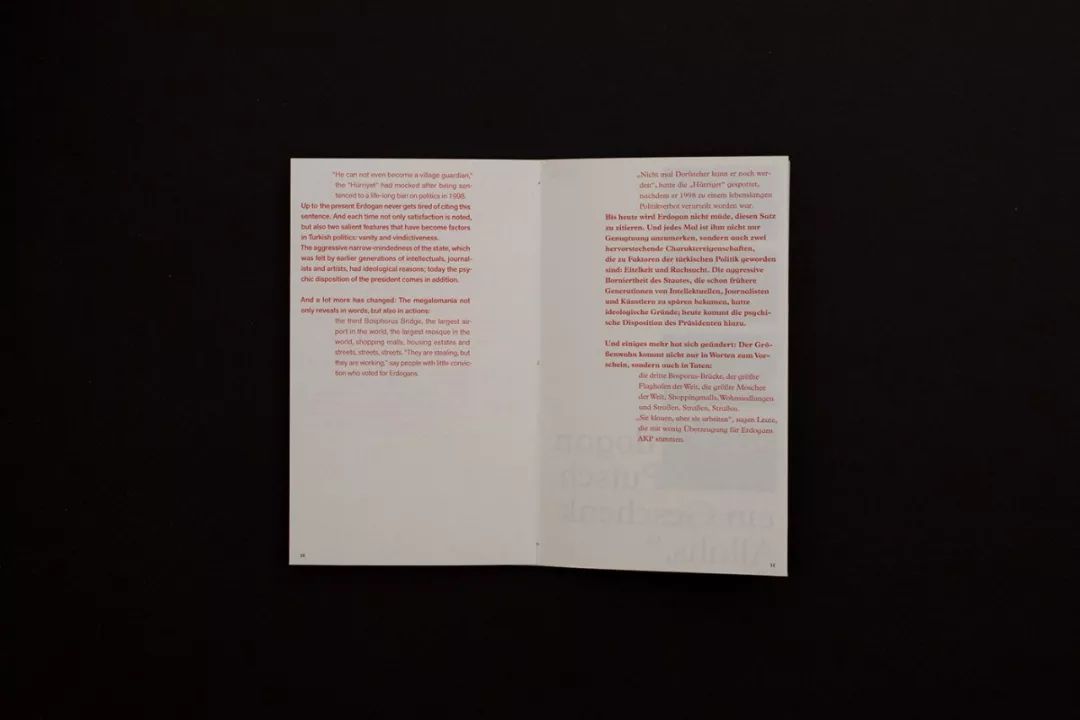 "He can not even become a village guardian,"
the "Hürriyet" had mocked after being sen-
tenced to a life-long ban on politics in 1998.
Up to the present Erdogan never gets tired of citing this
sentence. And each time not only satisfaction is noted,
but also two salient features that have become factors
in Turkish politics: vanity and vindictiveness.
The aggressive narrow-mindedness of the state, which
was felt by earlier generations of intellectuals, journal-
ists and artists, had ideological reasons; today the psy-
chic disposition of the president comes in addition.
And a lot more has changed: The megalomania not
only reveals in words, but also in actions:
the third Bosphorus Bridge, the largest air-
port in the world, the largest mosque in the
world, shopping malls, housing estates and
streets, streets, streets. "They are stealing, but
they are working," say people with little convic-
tion who voted for Erdogans.
„Nicht mal Dorfvorsteher kann er noch wer-
den“, hatte die „Hürriyet“ gespottet,
nachdem er 1998 zu einem lebenslangen
Politikverbot verurteilt worden war.
Bis heute wird Erdogan nicht müde, diesen Satz
zu zitieren. Und jedes Mal ist ihm nicht nur
Genugtuung anzumerken, sondern auch zwei
hervorstechende Charaktereigenschaften,
die zu Faktoren der türkischen Politik geworden
sind: Eitelkeit und Rachsucht. Die aggressive
Borniertheit des Staates, die schon frühere
Generationen von Intellektuellen, Journalisten
und Künstlern zu spüren bekamen, hatte
ideologische Gründe; heute kommt die psychi-
sche Disposition des Präsidenten hinzu.
Und einiges mehr hat sich geändert: Der Grö-
ßenwahn kommt nicht nur in Worten zum Vor-
schein, sondern auch in Taten:
die dritte Bosporus-Brücke, der größte
Flughafen der Welt, die größte Moschee
der Welt, Shoppingmalls, Wohnsiedlungen
und Straßen, Straßen, Straßen.
„Sie klauen, aber sie arbeiten“, sagen Leute,
die mit wenig Überzeugung für Erdogans
AKP stimmen.